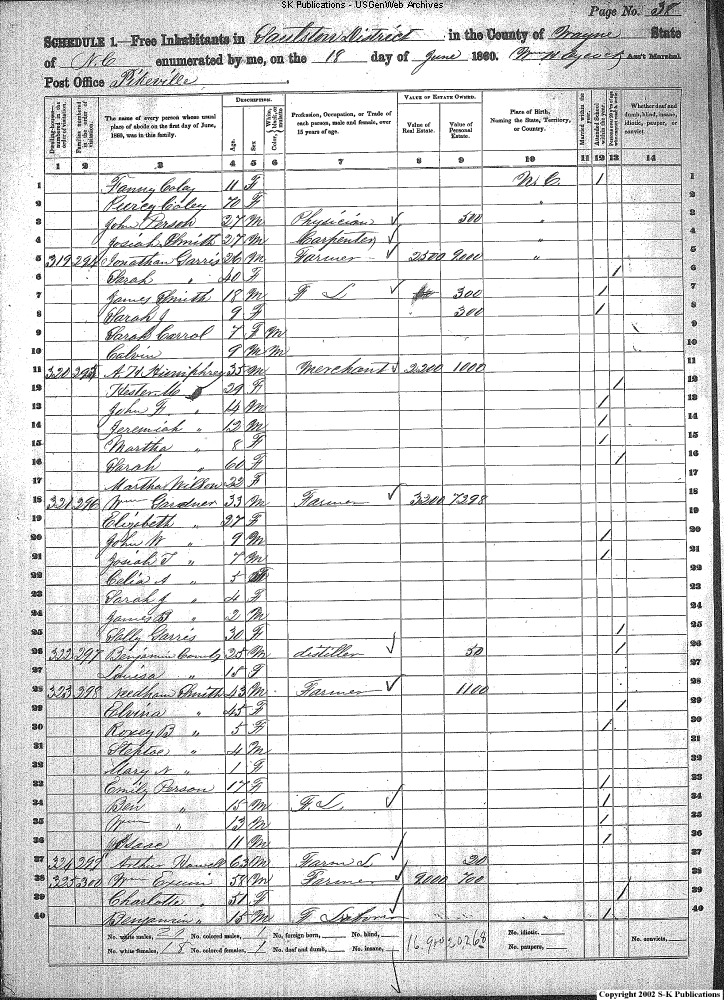 SK Publications - USGenWeb Archives
Page No. 38
SCHEDULE 1.—Free Inhabitants in District in the County of Wayne State
of N C enumerated by me, on the 18 day of June 1860. Ass't Marshal.
Post Office Pikeville
DESCRIPTION. VALUE OF ESTATE OWNED.
Dwelling-houses— numbered in the order of visitation.
Families numbered in the order of visitation.
The name of every person whose usual place of abode on the first day of June, 1860, was in this family.
Age. Sex. Color, White, black, or mulatto.
Profession, Occupation, or Trade of each person, male and female, over 15 years of age.
Value of Real Estate. Value of Personal Estate.
Place of Birth, Naming the State, Territory, or Country.
Married within the year. Attended School within the year.
Whether deaf and dumb, blind, insane, idiotic, pauper, or convict
1 2 3 4 5 6 7 8 9 10 11 12 13 14
1 Fanny Coley 11 F N. C. / 1
2 Piercy Coley 70 F " 2
3 John Person 27 M Physician ✓ 500 " 3
4 Josiah Smith 27 M Carpenter ✓ " 4
5 319 294 Jonathan Garris 26 M Farmer ✓ 2500 9000 " 5
6 Sarah " 40 F / 6
7 James Smith 18 M F L ✓ 300 / 7
8 Sarah J 9 F 300 / 8
9 Sarah Carrol 7 F M 9
10 Calvin 9 M M 10
11 320 295 A. W. Humphrey 35 M Merchant ✓ 2200 1000 11
12 Hester M 29 F / 12
13 John " 14 M / 13
14 Jeremiah " 12 M / 14
15 Martha " 8 F / 15
16 Sarah " 60 F / 16
17 Martha Wilson 22 F 17
18 321 296 Wm Gardner 33 M Farmer ✓ 3200 7298 18
19 Elizabeth " 27 F 19
20 John W " 9 M / 20
21 Josiah T " 7 M / 21
22 Celia A " 5 F 22
23 Sarah J " 4 F 23
24 James B " 2 M 24
25 Sally Garris 30 F / 25
26 322 297 Benjamin 25 M distiller ✓ 50 / 26
27 Louisa " 18 F 27
28 323 298 Needham Smith 43 M Farmer ✓ 1100 28
29 Elvina " 45 F / 29
30 Roxey B " 5 F / 30
31 Steptoe " 4 M 31
32 Mary N " 1 F 32
33 Emily Person 17 F / 33
34 Ben " 15 M F. L. ✓ / 34
35 Wm " 13 M / 35
36 Isaac 11 M / 36
37 324 299 Arthur Howell 63 M Farm L ✓ 20 37
38 325 300 Wm 58 M Farmer ✓ 9000 700 38
39 Charlotte " 51 F ✓ / 39
40 Benjamin " 15 M F ✓ / 40
No. white males, 21 No. colored males, 1 No. foreign born, No. blind, No. idiotic, No. convicts,
No. white females, 18 No. colored females, 1 No. deaf and dumb, No. insane, 16.900 20268 No. paupers,
Copyright 2002 S-K Publications